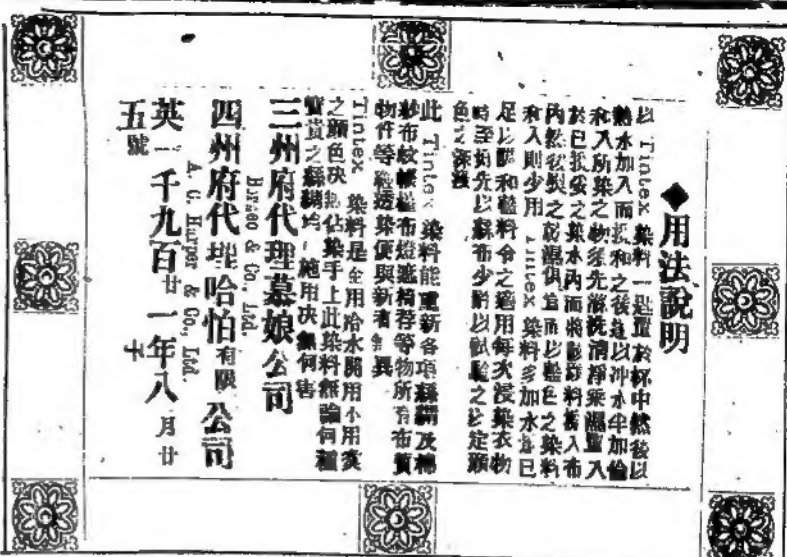 ◆用法說明
以 Tintex 染料一匙置於杯中然後以
熱水加入而攪和之後進以沖水年加倫
和入所染之物須先滌洗清淨乘濕置入
於已攪發之染水內而將染料攪入布
內然後熨之乾濕俱宜而以藍色之染料
和入則少用 Tintex 染料多加水卽已
足以調和藍料令之適用每次浸染衣物
時須先以蘇布少許以試驗之以定顏
色之深淺
此 Tintex 染料能重新各項絲綢及棉
紗布蚊帳檯布燈遮椅荐等物所有布質
物件等經透染便與新者無異
Tintex 染料是全用冷水開用不用煲
之顏色決無佔染手上此染料無論何種
寶貴之絲綢均可施用決無何害
三州府代理慕娘公司
Borneo & Co., Ltd.
四州府代理哈怕有限公司
A. C. Harper & Co., Ltd.
英一千九百廿一年八月廿
五號